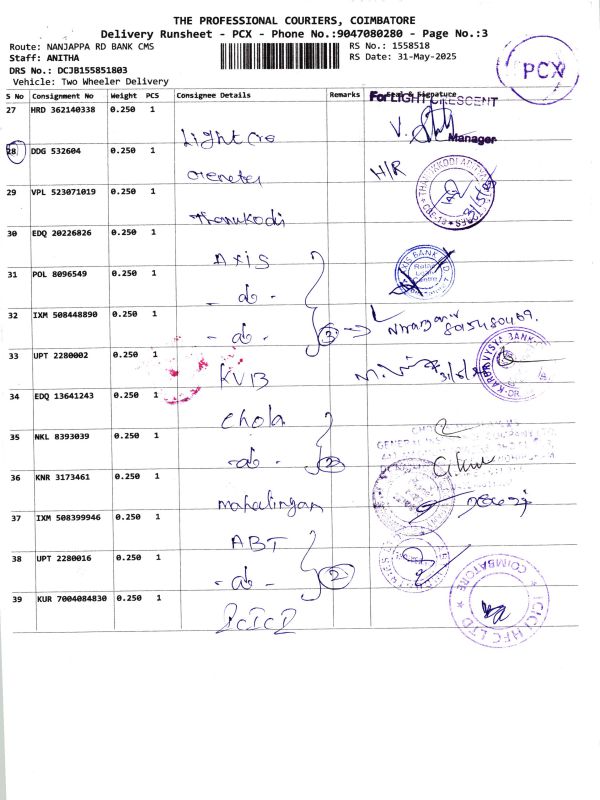 THE PROFESSIONAL COURIERS, COIMBATORE
Delivery Runsheet - PCX - Phone No.:9047080280 - Page No.:3
Route: NANJAPPA RD BANK CMS
RS No.: 1558518
Staff: ANITHA
RS Date: 31-May-2025
DRS No.: DCJB155851803
Vehicle: Two Wheeler Delivery
PCX
S No Consignment No Weight PCS Consignee Details Remarks Seal & Signature
For LIGHT CRESCENT
27 HRD 362140338 0.250 1 Light Cre
Manager
28 DDG 532604 0.250 1
H/R
29 VPL 523071019 0.250 1 Thanukodi
31/5/25
30 EDQ 20226826 0.250 1 Axis
AXIS BANK LTD
31 POL 8096549 0.250 1 - do -
32 IXM 508448890 0.250 1 - do - 3
33 UPT 2280002 0.250 1 KVB
34 EDQ 13641243 0.250 1 Chola
35 NKL 8393039 0.250 1 - do - 2
36 KNR 3173461 0.250 1 mahalingam
37 IXM 508399946 0.250 1 ABT
38 UPT 2280016 0.250 1 - do - 2
39 KUR 7004084830 0.250 1 ICICI
ICICI HFC LTD
COIMBATORE